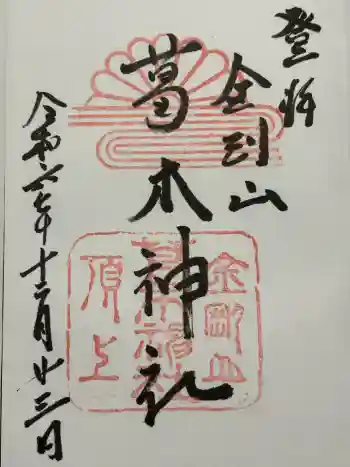 登拝
金剛山
葛木神社
令和六年十二月廿三日
金剛山
葛木神社
頂上